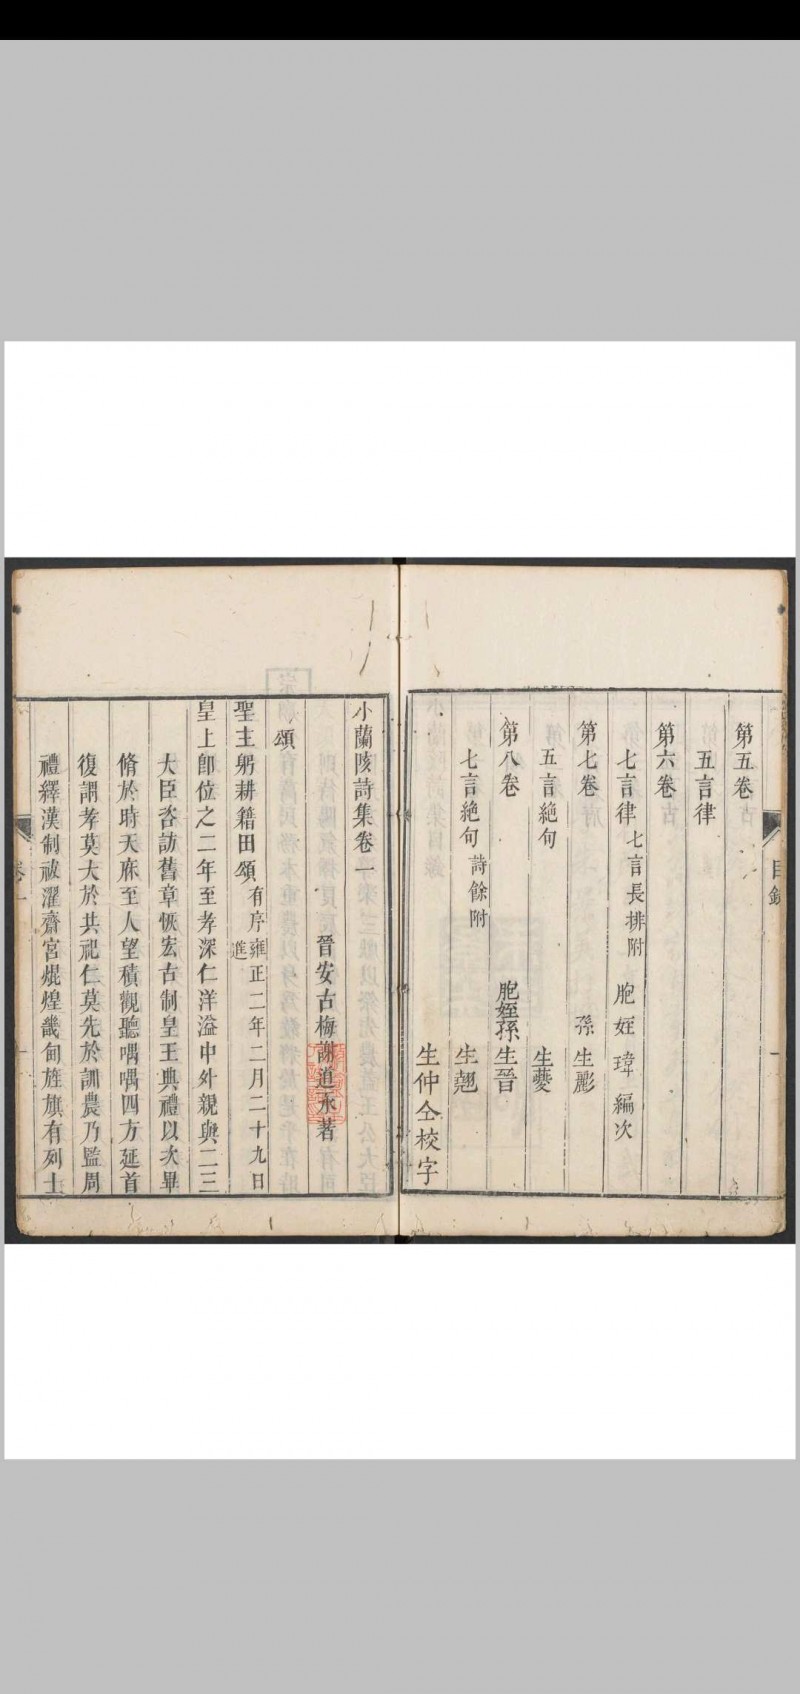 第五卷
五言律
第六卷
七言律 七言長排附 胞姪 瑋 編次
第七卷 孫 生彪
五言絶句 生夔
第八卷 胞姪孫 生晉
七言絶句 詩餘附 生翹
生仲仝校字
目錄
小蘭陔詩集卷一
晉安古梅謝道承著
頌
聖主躬耕籍田頌 有序 雍正二年二月二十九日進
皇上卽位之二年至孝深仁洋溢中外親與二三
大臣咨訪舊章恢宏古制皇王典禮以次畢
脩於時天庥至人望積觀聽喁喁四方延首
復謂孝莫大於共祀仁莫先於訓農乃監周
禮繹漢制祓濯齋宮焜煌畿甸旌旗有列士
卷一